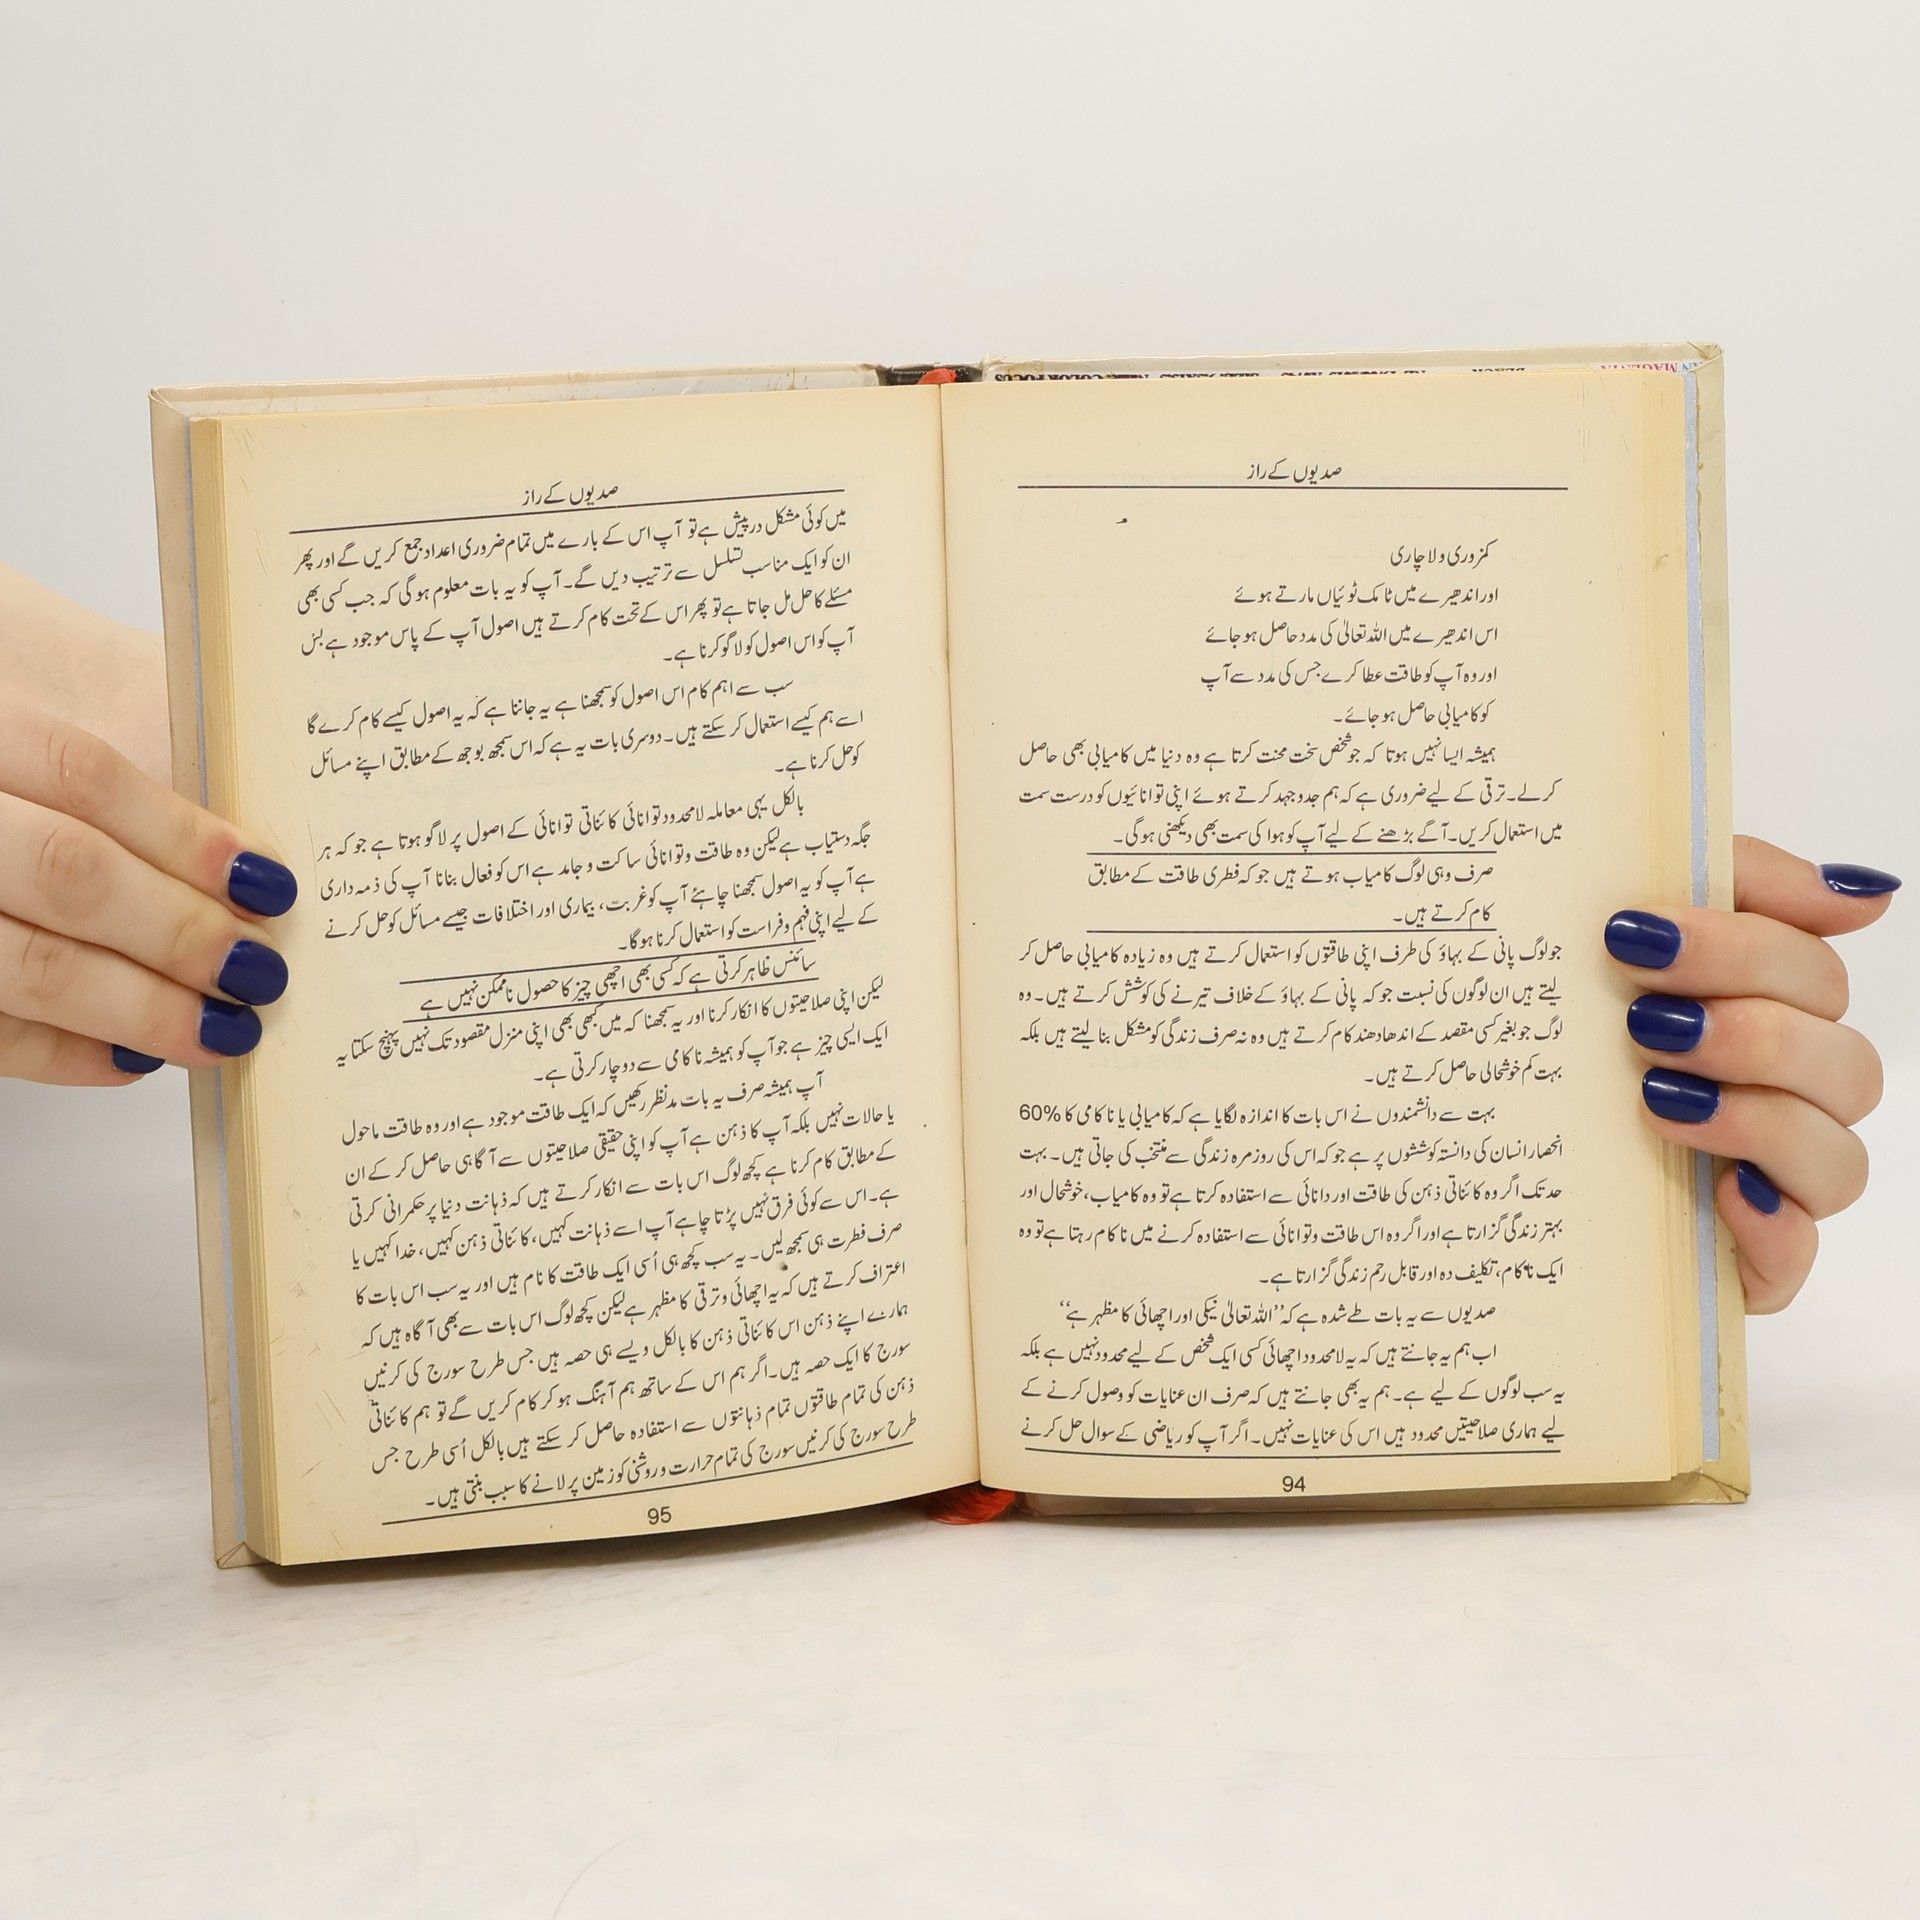 صدیوں کے راز
کمزوری و لاچاری
اور اندھیرے میں ٹامک ٹوئیاں مارتے ہوئے
اس اندھیرے میں اللہ تعالیٰ کی مدد حاصل ہو جائے
اور وہ آپ کو طاقت عطا کرے جس کی مدد سے آپ
کو کامیابی حاصل ہو جائے۔
ہمیشہ ایسا نہیں ہوتا کہ جو شخص سخت محنت کرتا ہے وہ دنیا میں کامیابی بھی حاصل
کر لے۔ ترقی کے لیے ضروری ہے کہ ہم جدوجہد کرتے ہوئے اپنی توانائیوں کو درست سمت
میں استعمال کریں۔ آگے بڑھنے کے لیے آپ کو ہوا کی سمت بھی دیکھنی ہوگی۔
صرف وہی لوگ کامیاب ہوتے ہیں جو کہ فطری طاقت کے مطابق
کام کرتے ہیں۔
جو لوگ پانی کے بہاؤ کی طرف اپنی طاقتوں کو استعمال کرتے ہیں وہ زیادہ کامیابی حاصل کر
لیتے ہیں ان لوگوں کی نسبت جو کہ پانی کے بہاؤ کے خلاف تیرنے کی کوشش کرتے ہیں۔ وہ
لوگ جو بغیر کسی مقصد کے اندھا دھند کام کرتے ہیں وہ نہ صرف زندگی کو مشکل بنا لیتے ہیں بلکہ
بہت کم خوشحالی حاصل کرتے ہیں۔
بہت سے دانشمندوں نے اس بات کا اندازہ لگایا ہے کہ کامیابی یا ناکامی کا 60%
انحصار انسان کی دانستہ کوششوں پر ہے جو کہ اس کی روزمرہ زندگی سے منتخب کی جاتی ہیں۔ بہت
حد تک اگر وہ کائناتی ذہن کی طاقت اور دانائی سے استفادہ کرتا ہے تو وہ کامیاب، خوشحال اور
بہتر زندگی گزارتا ہے اور اگر وہ اس طاقت و توانائی سے استفادہ کرنے میں ناکام رہتا ہے تو وہ
ایک ناکام، تکلیف دہ اور قابل رحم زندگی گزارتا ہے۔
صدیوں سے یہ بات طے شدہ ہے کہ ’’اللہ تعالیٰ نیکی اور اچھائی کا مظہر ہے‘‘
اب ہم یہ جانتے ہیں کہ یہ لامحدود اچھائی کسی ایک شخص کے لیے محدود نہیں ہے بلکہ
یہ سب لوگوں کے لیے ہے۔ ہم یہ بھی جانتے ہیں کہ صرف ان عنایات کو وصول کرنے کے
لیے ہماری صلاحیتیں محدود ہیں اس کی عنایات نہیں۔ اگر آپ کو ریاضی کے سوال حل کرنے
94
صدیوں کے راز
میں کوئی مشکل درپیش ہے تو آپ اس کے بارے میں تمام ضروری اعداد جمع کریں گے اور پھر
ان کو ایک مناسب تسلسل سے ترتیب دیں گے۔ آپ کو یہ بات معلوم ہوگی کہ جب کسی بھی
مسئلے کا حل مل جاتا ہے تو پھر اس کے تحت کام کرتے ہیں اصول آپ کے پاس موجود ہے بس
آپ کو اس اصول کو لاگو کرنا ہے۔
سب سے اہم کام اس اصول کو سمجھنا ہے یہ جاننا ہے کہ یہ اصول کیسے کام کرے گا
اسے ہم کیسے استعمال کر سکتے ہیں۔ دوسری بات یہ ہے کہ اس سمجھ بوجھ کے مطابق اپنے مسائل
کو حل کرنا ہے۔
بالکل یہی معاملہ لامحدود توانائی کائناتی توانائی کے اصول پر لاگو ہوتا ہے جو کہ ہر
جگہ دستیاب ہے لیکن وہ طاقت و توانائی ساکت و جامد ہے اس کو فعال بنانا آپ کی ذمہ داری
ہے آپ کو یہ اصول سمجھنا چاہئے آپ کو غربت، بیماری اور اختلافات جیسے مسائل کو حل کرنے
کے لیے اپنی فہم و فراست کو استعمال کرنا ہوگا۔
سائنس ظاہر کرتی ہے کہ کسی بھی اچھی چیز کا حصول ناممکن نہیں ہے
لیکن اپنی صلاحیتوں کا انکار کرنا اور یہ سمجھنا کہ میں کبھی بھی اپنی منزل مقصود تک نہیں پہنچ سکتا یہ
ایک ایسی چیز ہے جو آپ کو ہمیشہ ناکامی سے دوچار کرتی ہے۔
آپ ہمیشہ صرف یہ بات مدنظر رکھیں کہ ایک طاقت موجود ہے اور وہ طاقت ماحول
یا حالات نہیں بلکہ آپ کا ذہن ہے آپ کو اپنی حقیقی صلاحیتوں سے آگاہی حاصل کر کے ان
کے مطابق کام کرنا ہے کچھ لوگ اس بات سے انکار کرتے ہیں کہ ذہانت دنیا پر حکمرانی کرتی
ہے۔ اس سے کوئی فرق نہیں پڑتا چاہے آپ اسے ذہانت کہیں، کائناتی ذہن کہیں، خدا کہیں یا
صرف فطرت ہی سمجھ لیں۔ یہ سب کچھ ہی اُسی ایک طاقت کا نام ہیں اور یہ سب اس بات کا
اعتراف کرتے ہیں کہ یہ اچھائی و ترقی کا مظہر ہے لیکن کچھ لوگ اس بات سے بھی آگاہ ہیں کہ
ہمارے اپنے ذہن اس کائناتی ذہن کا بالکل ویسے ہی حصہ ہیں جس طرح سورج کی کرنیں
سورج کا ایک حصہ ہیں۔ اگر ہم اس کے ساتھ ہم آہنگ ہو کر کام کریں گے تو ہم کائناتی
ذہن کی تمام طاقتوں تمام ذہانتوں سے استفادہ حاصل کر سکتے ہیں بالکل اُسی طرح جس
طرح سورج کی کرنیں سورج کی تمام حرارت و روشنی کو زمین پر لانے کا سبب بنتی ہیں۔
95